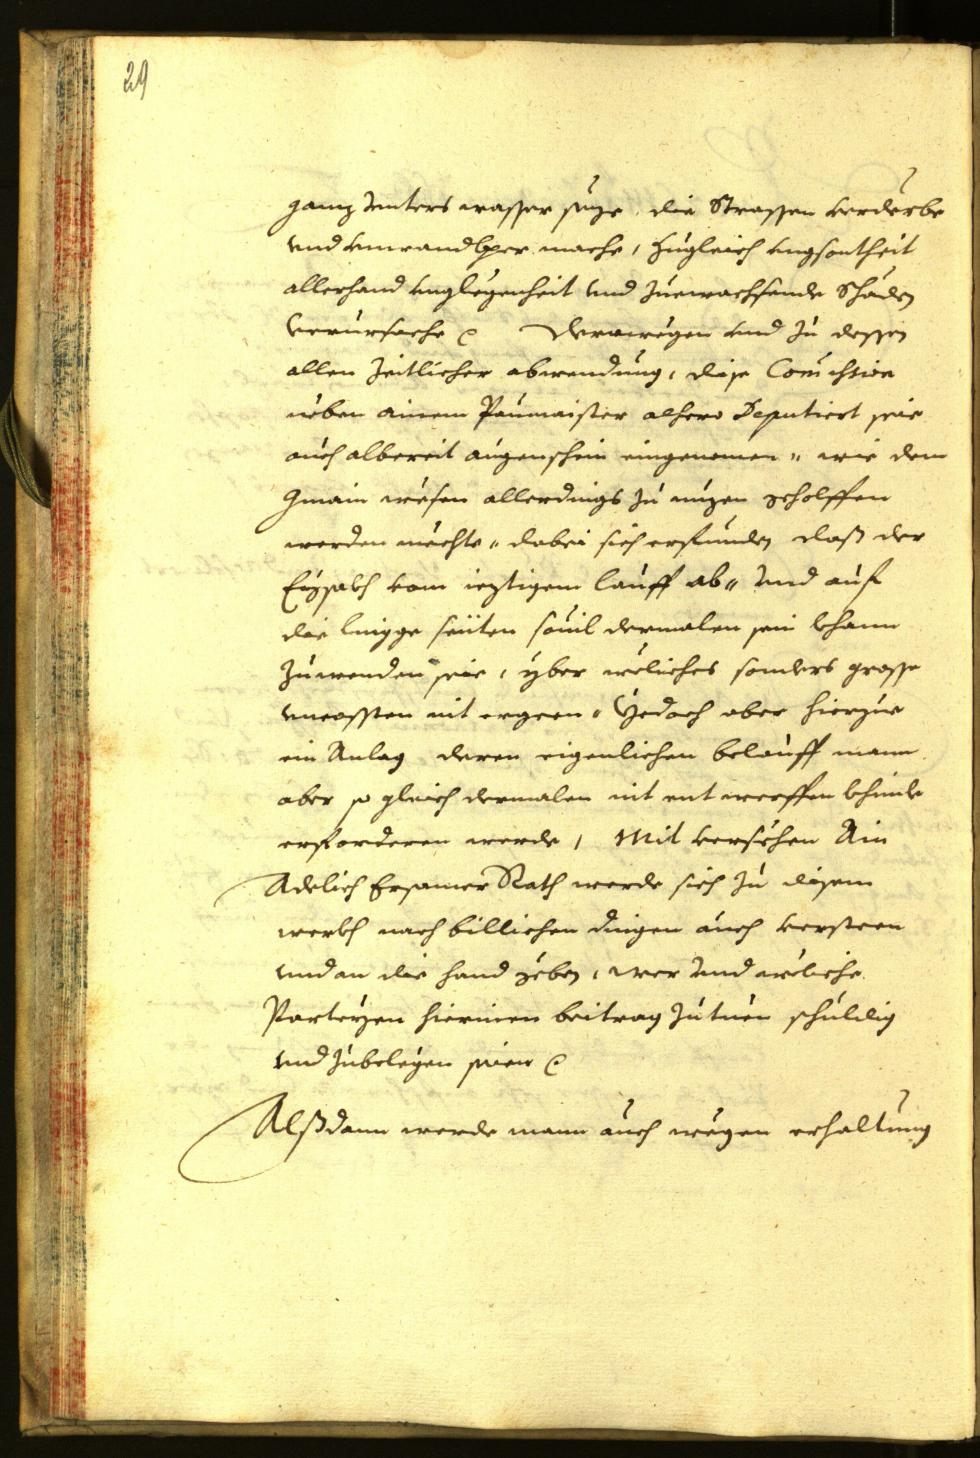 29
ganz vnters wasser seze, die Strassen verderbe
vnd vnwandlber mache, zugleich
allerhand vnglegenheit vnd zuewachsende Schäden
verursache Derowegen vnd zu dessen
allen zeitlicher abwendung, dise Comission
neben ainem Paumaister alhero Deputiert seie
auch albereit augenschein eingenomen, wie dem
Gmain wesen allerdings zu nuzen geholffen
werden mechte, dabei sich erfunden daß der
Eysakh vom ieztigem lauff ab, vnd auf
die lingge seiten souil dermalen sein khann
zuwenden seie, yber weliches sonders grosse
vncossten nit ergeen, Jedoch aber hierzue
ein Anlag deren eigenlichen belauff mann
aber so gleich dermalen nit entwerffen khünde
erforderen werde, Mit versehen Ain
Adelich Ersamer Rath werde sich zu disem
werkh nach billichen dingen auch versteen
vnd an die hand geben, wer vnd weliche
Parteyen hierinen beitrag zutuen schuldig
vnd zubelegen seien
Alßdann werde mann auch wegen erhaltung